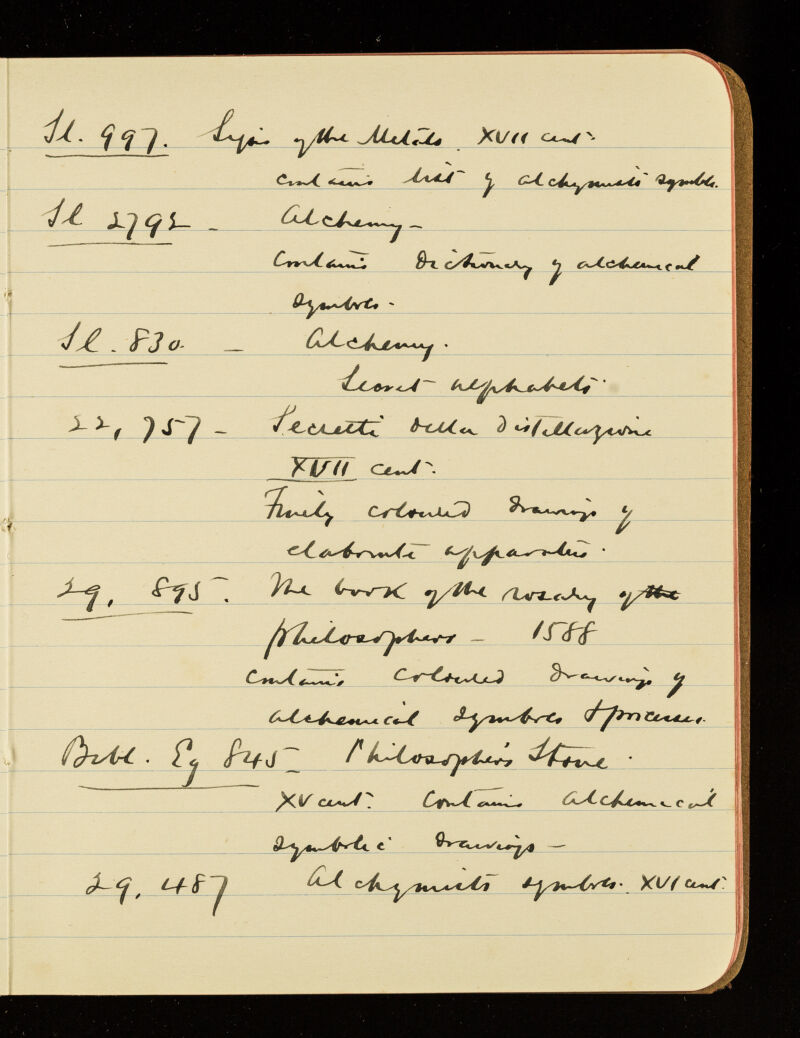 Sl. 997. Signs of the Metals. XVII cent.
contains list of alchymists symbols.
Sl 2792 - Alchemy -
Contains dictionary of alchemical
symbols.
Sl. 830 - Alchemy.
Secret alphabets.
22,757 - Secretti della distillazione
XVII cent.
Finely coloured drawings of
elaborate apparatus.
29, 895. The book of the rosary of the
philosophers - 1588
contains coloured drawings of
alchemical symbols & processes.
Bibl. Eg 845 - Philosopher's Stone.
XV cent. Contains alchemical
symbolic drawings -
29, 487 Alchymists symbols. XVI cent.